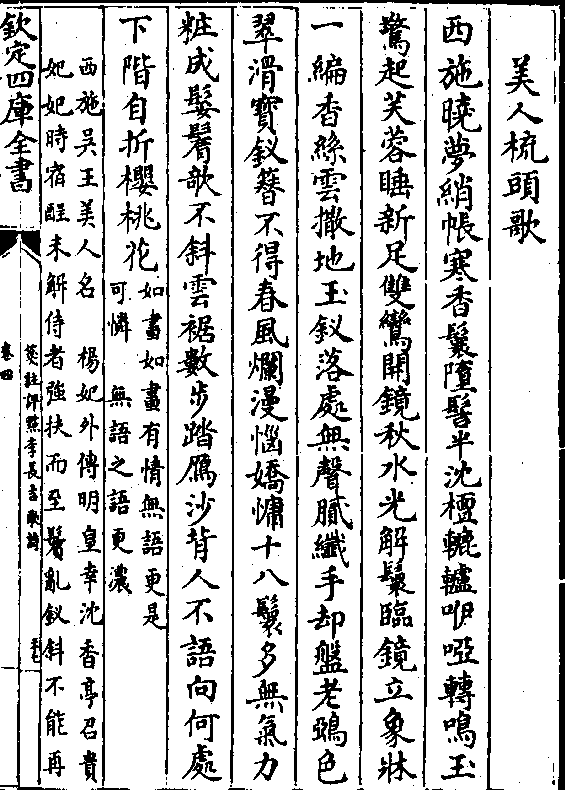 美人梳頭歌
西施曉夢綃帳寒香鬟墮髻半沈檀轆轤咿啞轉鳴玉
驚起芙蓉睡新足雙鸞開鏡秋水光解鬟臨鏡立象牀
一編香絲雲撒地玉釵落處無聲膩纖手却盤老鵶色
翠滑寶釵簪不得春風爛漫惱嬌慵十八鬟多無氣力
粧成䰀鬌欹不斜雲裾數步踏鴈沙背人不語向何處
下階自折櫻桃花
如畫如畫有情無語更是
可憐 無語之語更濃
西施吳王美人名 楊妃外傳明皇幸沈香亭召貴
妃妃時宿酲未解侍者強扶而至鬢亂釵斜不能再
欽定四庫全書
箋註評㸃李長吉歌詩
卷四